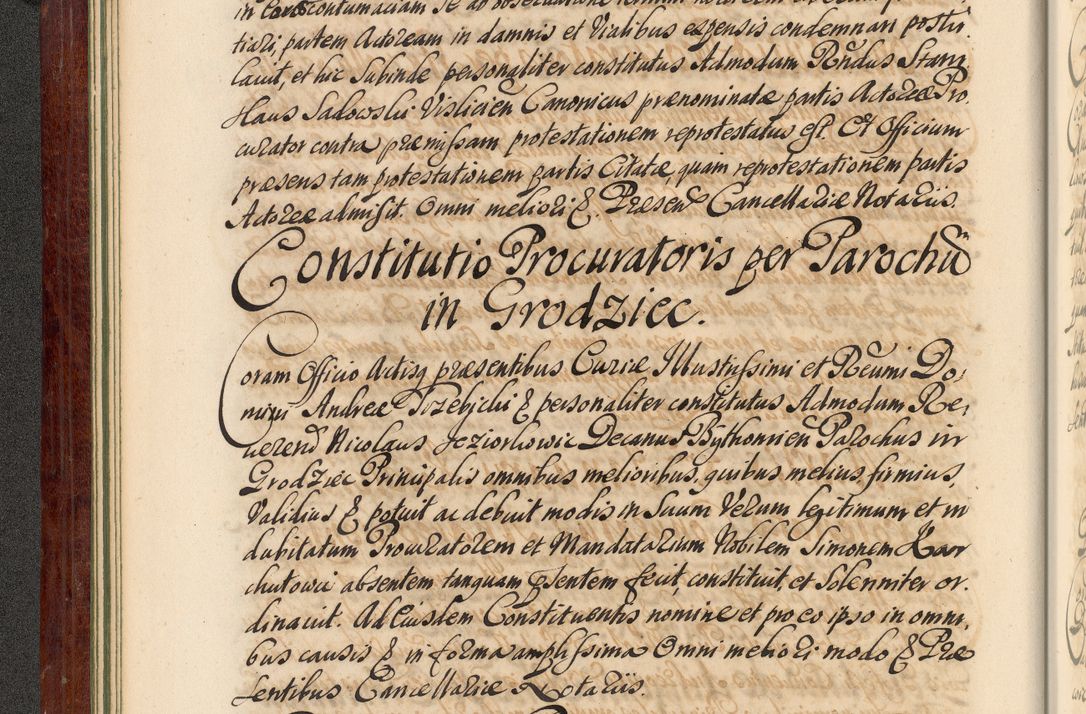 in contumaciam se ab observatione termini
tiari, partem Actoream in damnis et litalibus expensis condemnari postu,
lavit, et hic Subinde personaliter constitutus Admodum Rndus Stani,
slaus Sadowski Vislicien Canonicus prænominatæ partis Actoreæ Pro,
curator contra præmissam protestationem reprotestatus est. Et Officium
præsens tam protestationem partis Citatæ, quam reprotestationem partis
Actoreæ admisit. Omni meliori & Præsen Cancellariæ Notariis.
Constitutio Procuratoris per Parochu
in Grodziec.
Coram Officio Actisq præsentibus Curiæ Illustrissimi et Reumi Do,
mini Andreæ Trzebicki & personaliter constitutus Admodum Re,
verend Nicolaus Jeziorkowic Decanus Bythomien Parochus in
Grodziec Principalis omnibus melioribus, quibus melius, firmius,
Validius & potuit ac debuit modis in Suum Verum legitimum et in
dubitatum Procuratorem et Mandatarium Nobilem Simonem Kar
chutowic absentem tanquam pſentem fecit, constituit, et Solenniter or,
dinavit. Ad Eiusdem Constituentis nomine et pro eo ipso in omni,
bus causis & in forma amplissima Omni meliori modo & Præ
sentibus Cancellariæ Notariis.